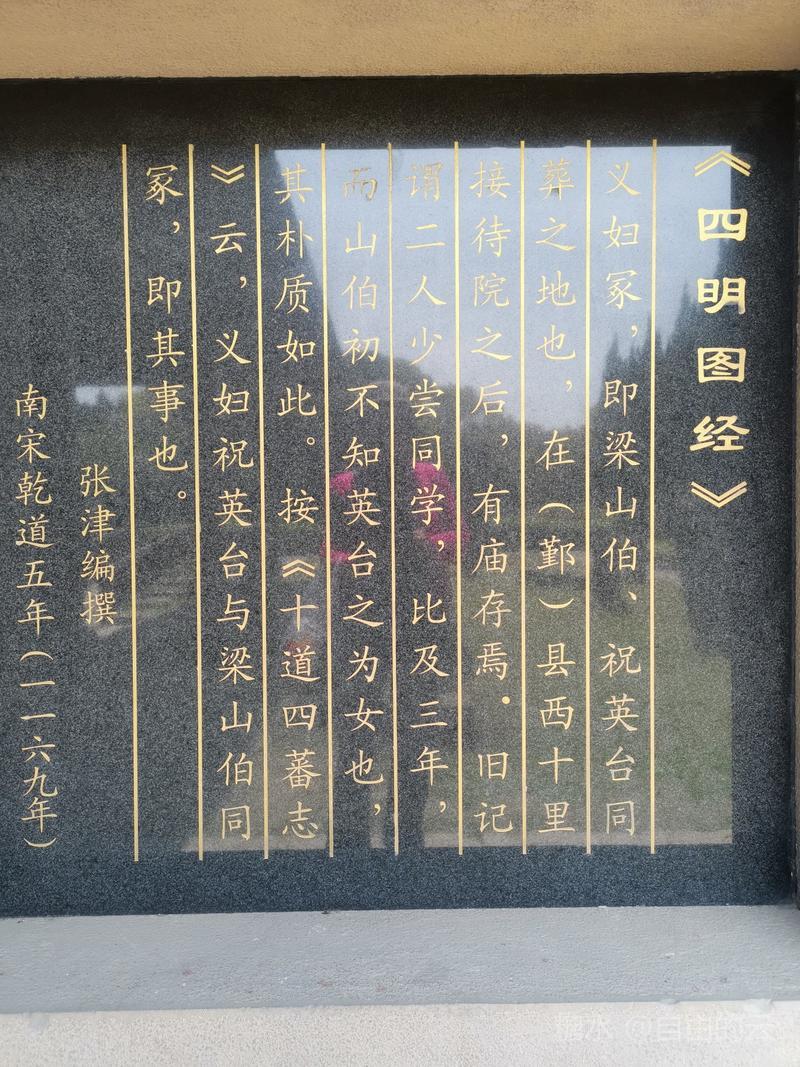 《四明图经》
义妇冢，即梁山伯、祝英台同
葬之地也，在（鄞）县西十里
接待院之后，有庙存焉．旧记
谓二人少尝同学，比及三年，
而山伯初不知英台之为女也，
其朴质如此。按《十道四蕃志
》云，义妇祝英台与梁山伯同
冢，即其事也。
张津编撰
南宋乾道五年（一一六九年）
@自由的云